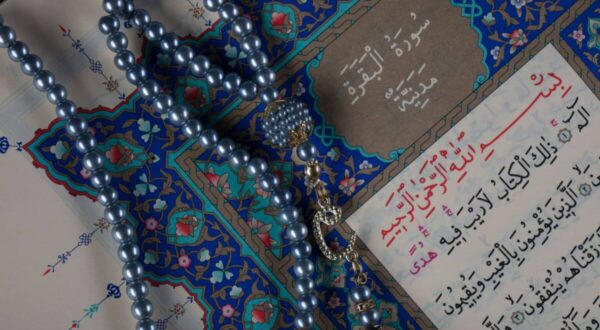 سُورَةُ الْبَقَرَةِ
مَدَنِيَّةٌ
بِسْمِ اللَّهِ الرَّحْمَٰنِ الرَّحِيمِ
الٓمٓ ۝١ ذَٰلِكَ الْكِتَابُ لَا رَيْبَ فِيهِ هُدًى
الَّذِينَ يُؤْمِنُونَ بِالْغَيْبِ وَيُقِيمُونَ
رَزَقْنَاهُمْ يُنْفِقُونَ